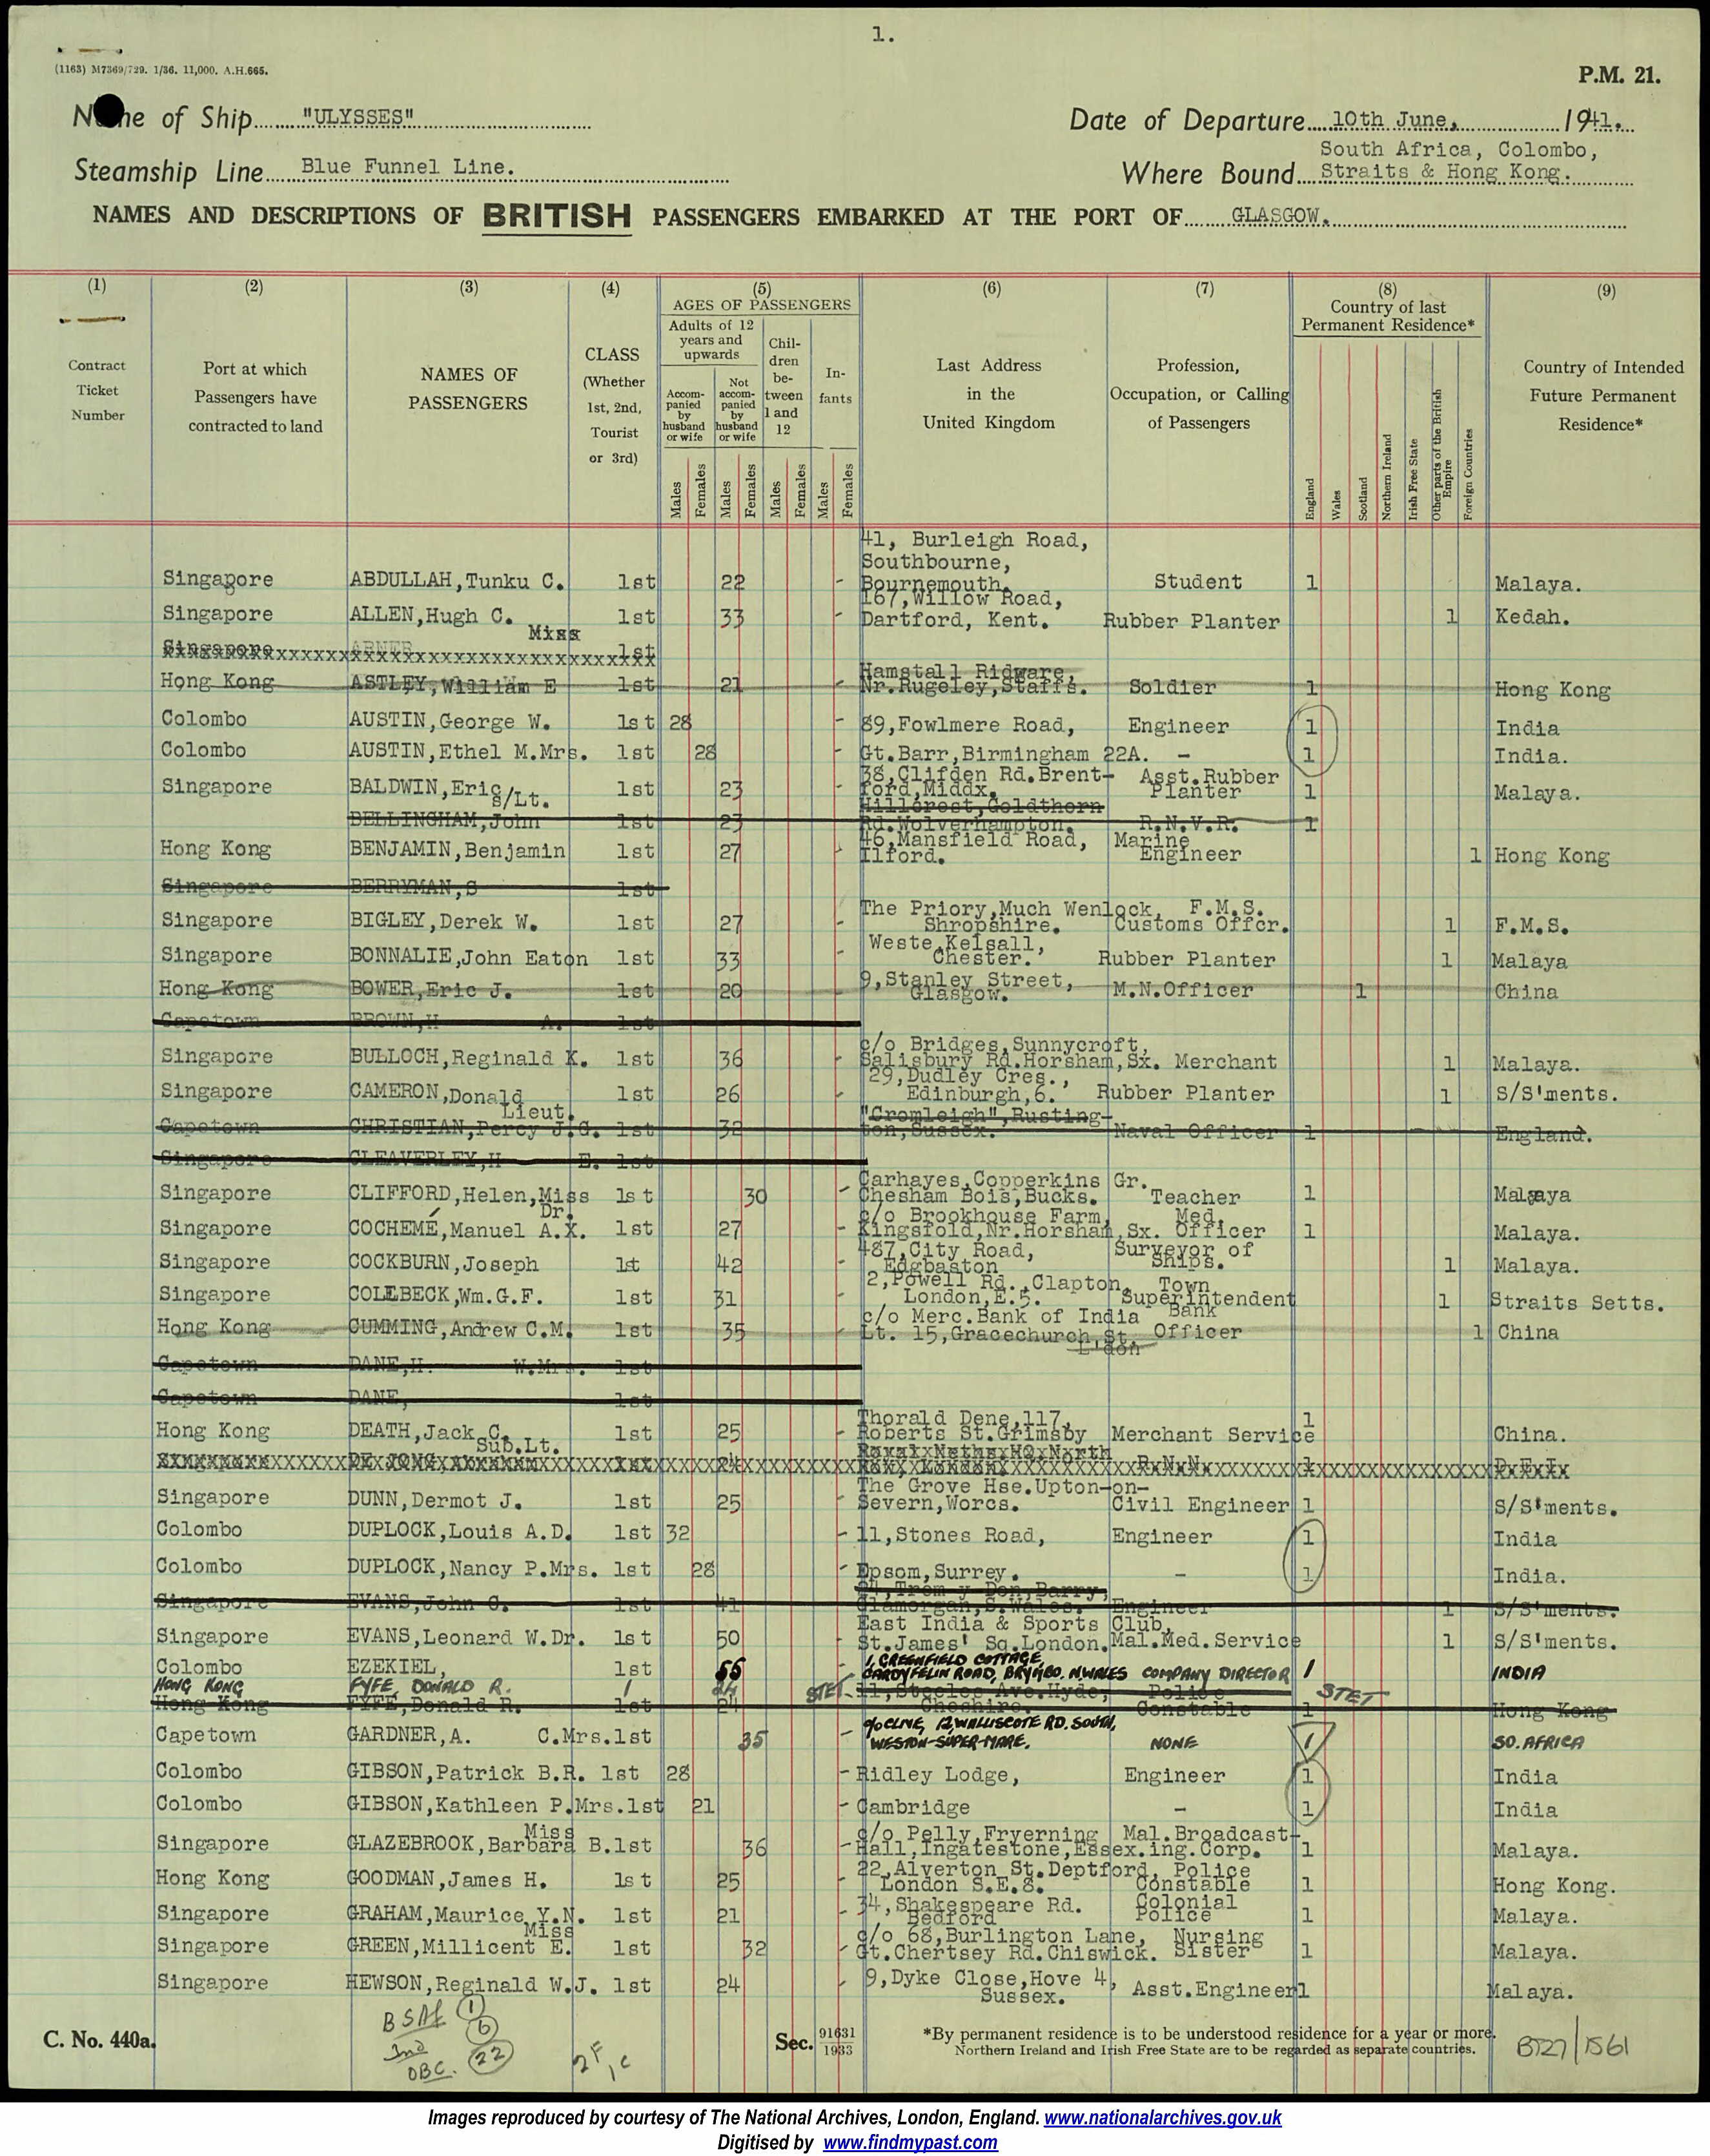 1.
(1163) M7369/729. 1/36. 11,000. A.H.665.
P.M. 21.
Name of Ship "ULYSSES" Date of Departure 10th June, 1941.
Steamship Line Blue Funnel Line. Where Bound South Africa, Colombo,
Straits & Hong Kong.
NAMES AND DESCRIPTIONS OF BRITISH PASSENGERS EMBARKED AT THE PORT OF GLASGOW.
(1) (2) (3) (4) (5) (6) (7) (8) (9)
Contract Ticket Number
Port at which Passengers have contracted to land
NAMES OF PASSENGERS
CLASS (Whether 1st, 2nd, Tourist or 3rd)
AGES OF PASSENGERS
Adults of 12 years and upwards
Accompanied by husband or wife
Not accompanied by husband or wife
Children between 1 and 12
Infants
Males Females Males Females Males Females Males Females
Last Address in the United Kingdom
Profession, Occupation, or Calling of Passengers
Country of last Permanent Residence*
England Wales Scotland Northern Ireland Irish Free State Other parts of the British Empire Foreign Countries
Country of Intended Future Permanent Residence*
Singapore ABDULLAH,Tunku C. 1st 22 - 41, Burleigh Road, Southbourne, Bournemouth. Student 1 Malaya.
Singapore ALLEN,Hugh C. 1st 33 - 167,Willow Road, Dartford, Kent. Rubber Planter 1 Kedah.
Singapore ABNER Miss 1st
Hong Kong ASTLEY,William E 1st 21 - Hamstall Ridware, Nr.Rugeley,Staffs. Soldier 1 Hong Kong
Colombo AUSTIN,George W. 1st 28 - 89,Fowlmere Road, Engineer 1 India
Colombo AUSTIN,Ethel M.Mrs. 1st 28 - Gt.Barr,Birmingham 22A. - 1 India.
Singapore BALDWIN,Eric 1st 23 - 38,Clifden Rd.Brentford,Middx. Asst.Rubber Planter 1 Malaya.
BELLINGHAM,John S/Lt. 1st 23 Hillcrest,Goldthorn Rd.Wolverhampton. R.N.V.R. 1
Hong Kong BENJAMIN,Benjamin 1st 27 - 46,Mansfield Road, Ilford. Marine Engineer 1 Hong Kong
Singapore BERRYMAN,S 1st
Singapore BIGLEY,Derek W. 1st 27 - The Priory,Much Wenlock, Shropshire. F.M.S. Customs Offcr. 1 F.M.S.
Singapore BONNALIE,John Eaton 1st 33 - Weste,Kelsall, Chester. Rubber Planter 1 Malaya
Hong Kong BOWER,Eric J. 1st 20 - 9,Stanley Street, Glasgow. M.N.Officer 1 China
Capetown BROWN,H A. 1st
Singapore BULLOCH,Reginald K. 1st 36 - c/o Bridges,Sunnycroft, Salisbury Rd.Horsham,Sx. Merchant 1 Malaya.
Singapore CAMERON,Donald 1st 26 - 29,Dudley Cres., Edinburgh,6. Rubber Planter 1 S/S'ments.
Capetown CHRISTIAN,Percy J.G. Lieut. 1st 32 "Cromleigh",Rustington,Sussex. Naval Officer 1 England.
Singapore CLEAVERLEY,H E. 1st
Singapore CLIFFORD,Helen,Miss 1st 30 - Carhayes,Copperkins Chesham Bois,Bucks. Gr. Teacher 1 Malaya
Singapore COCHEMÉ,Manuel A.X. Dr. 1st 27 - c/o Brookhouse Farm, Kingsfold,Nr.Horsham,Sx. Med. Officer 1 Malaya.
Singapore COCKBURN,Joseph 1st 42 - 487,City Road, Edgbaston Surveyor of Ships. 1 Malaya.
Singapore COLEBECK,Wm.G.F. 1st 31 - 2,Powell Rd.,Clapton, London,E.5. Town Superintendent 1 Straits Setts.
Hong Kong CUMMING,Andrew C.M. 1st 35 - c/o Merc.Bank of India Lt. 15,Gracechurch,St. L'don Bank Officer 1 China
Capetown DANE,H. W.Mrs. 1st
Capetown DANE, 1st
Hong Kong DEATH,Jack C. 1st 25 - Thorald Dene,117, Roberts St.Grimsby Merchant Service 1 China.
DE JONG, Sub.Lt. 24 London R.N.N. 1 D.E.I.
Singapore DUNN,Dermot J. 1st 25 - The Grove Hse.Upton-on-Severn,Worcs. Civil Engineer 1 S/S'ments.
Colombo DUPLOCK,Louis A.D. 1st 32 - 11,Stones Road, Engineer 1 India
Colombo DUPLOCK,Nancy P.Mrs. 1st 28 - Epsom,Surrey. - 1 India.
Singapore EVANS,John G. 1st 41 24,Trem y Don,Barry, Glamorgan,S.Wales. Engineer 1 S/S'ments.
Singapore EVANS,Leonard W.Dr. 1st 50 - East India & Sports Club, St.James' Sq.London. Mal.Med.Service 1 S/S'ments.
Colombo EZEKIEL, 1st 55 - 1, GREENFIELD COTTAGE, GARDYFELIN ROAD, BRYMBO, N.WALES COMPANY DIRECTOR 1 INDIA
HONG KONG FYFE, DONALD R. 1 24 STET STET
Hong Kong FYFE,Donald R. 1st 24 11,Steeles Ave.Hyde, Cheshire. Police Constable 1 Hong Kong
Capetown GARDNER,A. C.Mrs.1st 35 - c/o CLIVE, 12, WALLISCOTE RD. SOUTH, WESTON-SUPER-MARE. NONE 1 SO. AFRICA
Colombo GIBSON,Patrick B.R. 1st 28 - Ridley Lodge, Engineer 1 India
Colombo GIBSON,Kathleen P.Mrs.1st 21 - Cambridge - 1 India
Singapore GLAZEBROOK,Barbara B. Miss 1st 36 - c/o Pelly,Fryerning Hall,Ingatestone,Essex. Mal.Broadcasting.Corp. 1 Malaya.
Hong Kong GOODMAN,James H. 1st 25 - 22,Alverton St.Deptford, London S.E.8. Police Constable 1 Hong Kong.
Singapore GRAHAM,Maurice Y.N. 1st 21 - 34,Shakespeare Rd. Bedford Colonial Police 1 Malaya.
Singapore GREEN,Millicent E. Miss 1st 32 - c/o 68,Burlington Lane, Gt.Chertsey Rd.Chiswick. Nursing Sister 1 Malaya.
Singapore HEWSON,Reginald W.J. 1st 24 - 9,Dyke Close,Hove 4, Sussex. Asst.Engineer 1 Malaya.
BSAf 1
6
Ind
OBC. 22
2F 1c
C. No. 440a.
Sec. 91631 1933
*By permanent residence is to be understood residence for a year or more.
Northern Ireland and Irish Free State are to be regarded as separate countries.
BT27/1561
Images reproduced by courtesy of The National Archives, London, England. www.nationalarchives.gov.uk
Digitised by www.findmypast.com